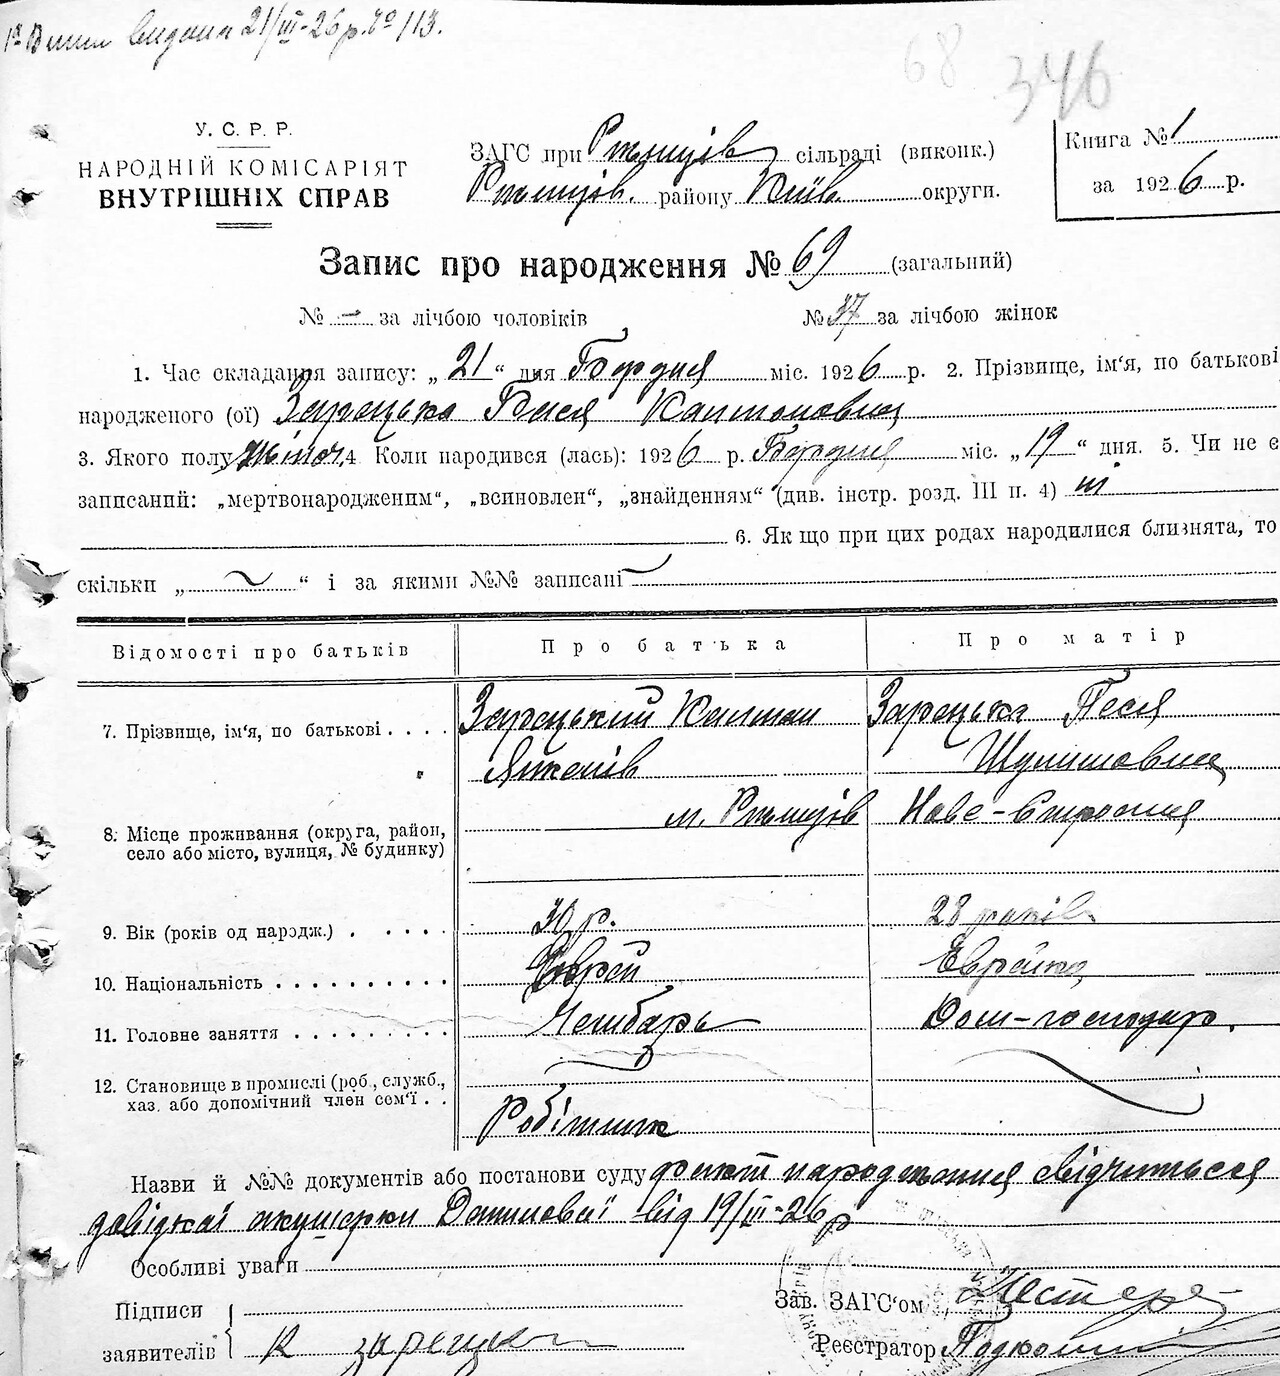 видана 21/III-26 р. № 113.
68 346
У. С. Р. Р.
НАРОДНІЙ КОМІСАРІЯТ
ВНУТРІШНІХ СПРАВ
ЗАГС при Ржищів сільраді (виконк.)
Ржищів. району Київ. округи.
Книга № 1
за 1926 р.
Запис про народження № 69 (загальний)
№ — за лічбою чоловіків № 37 за лічбою жінок
1. Час складання запису: „21“ дня Березня міс. 1926 р. 2. Прізвище, ім‘я, по батькові
народженого (ої) Зарецька Бася Калмановна
3. Якого полу жіноч. 4 Коли народився (лась): 1926 р. Березня міс. „19“ дня. 5. Чи не є
записаний: „мертвонародженим“, „всиновлен“, „знайденням“ (див. інстр. розд. III п. 4) ні
6. Як що при цих родах народилися близнята, то
скільки „ ~ “ і за якими №№ записані —
Відомості про батьків Про батька Про матір
7. Прізвище, ім‘я, по батькові . . . . Зарецький Калман Зарецька Песя
Янкелів Шулимовна
8. Місце проживання (округа, район, м. Ржищів Нове-Строєння
село або місто, вулиця, № будинку)
9. Вік (років од народж.) . . . . . 30 р. 28 років
10. Національність . . . . . . . . . . Єврей Еврейка
11. Головне заняття . . . . . . . . Чембарь Дом-господар.
12. Становище в промислі (роб., служб.,
хаз. або допомічний член сем‘ї . . Робітник
Назви й №№ документів або постанови суду факт народження свідчиться
довідкаї акушерки Даниловаї від 19/III-26 р
Особливі уваги
Підписи
заявителів К зарецки
Зав. ЗАГС‘ом
Реєстратор